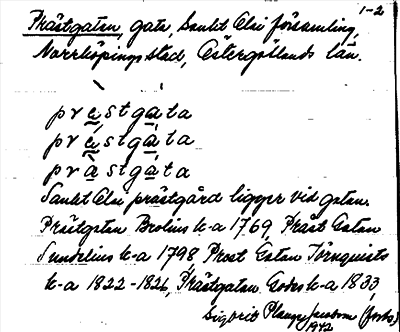 1-2
Prästgatan, gata, Sankt Olai församling,
Norrköpings stad, Östergötlands län.
prästgàta
prástgàta
pràstgàta
Sankt Olai prästgård ligger vid gatan.
Prästgatan Brolins k-a 1769 Präst Gatan
Sundelius k-a 1798, Prost Gatan Törnquists
k-a 1822-1826, Prästgatan. Godes k-a 1833,
Sigbrit Plænge Jacobson (forts.)
1942